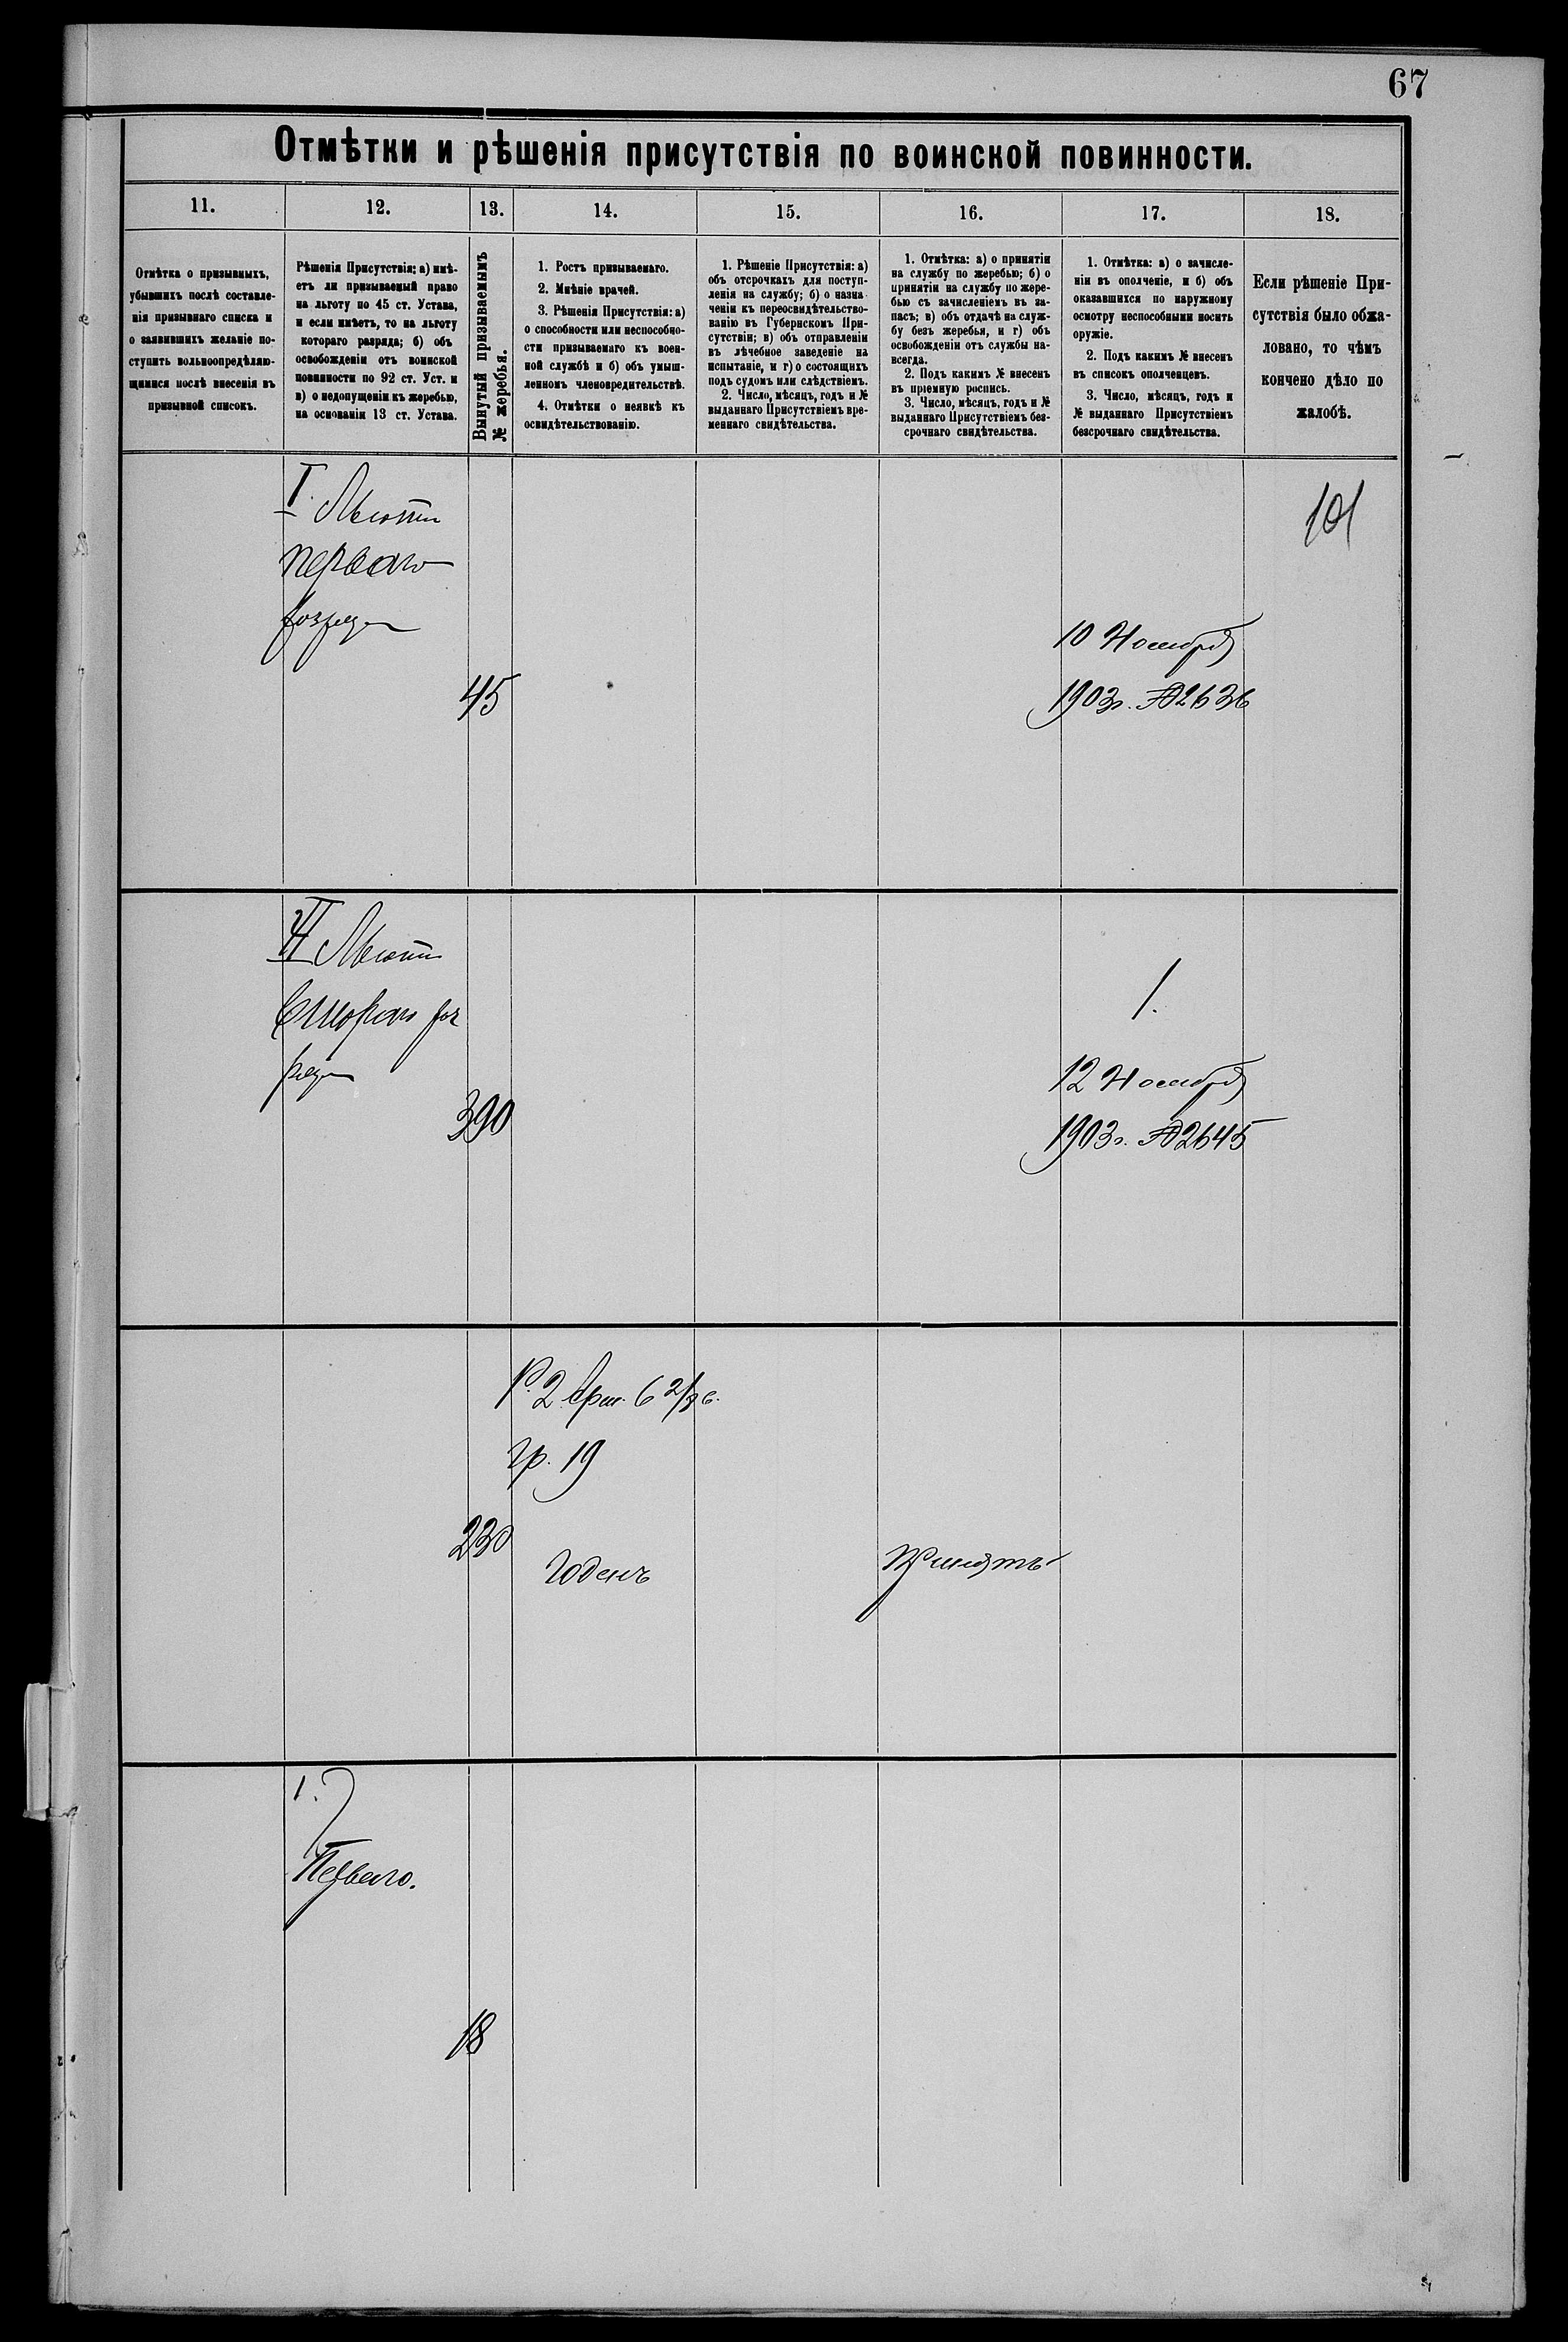 67
Отмѣтки и рѣшенія присутствія по воинской повинности.
11.
12.
13.
14.
15.
16.
17.
18.
Отмѣтка о призывныхъ,
убывшихъ послѣ составле-
нія призывнаго списка и
о заявившихъ желаніе по-
ступить вольноопредѣляю-
щимися послѣ внесенія въ
призывной списокъ.
Рѣшенія Присутствія: а) имѣ-
етъ ли призываемый право
на льготу по 45 ст. Устава,
и если имѣетъ, то на льготу
котораго разряда; б) объ
освобожденіи отъ воинской
повинности по 92 ст. Уст. и
в) о недопущеніи къ жеребью,
на основаніи 13 ст. Устава.
Вынутый призываемымъ
№ жеребья.
1. Ростъ призываемаго.
2. Мнѣніе врачей.
3. Рѣшенія Присутствія: а)
о способности или неспособно-
сти призываемаго къ воен-
ной службѣ и б) объ умыш-
ленномъ членовредительствѣ.
4. Отмѣтки о неявкѣ къ
освидѣтельствованію.
1. Рѣшеніе Присутствія: а)
объ отсрочкахъ для поступ-
ленія на службу; б) о назна-
ченіи къ переосвидѣтельство-
ванію въ Губернскомъ При-
сутствіи; в) объ отправленіи
въ лѣчебное заведеніе на
испытаніе, и г) о состоящихъ
подъ судомъ или слѣдствіемъ.
2. Число, мѣсяцъ, годъ и №
выданнаго Присутствіемъ вре-
меннаго свидѣтельства.
1. Отмѣтка: а) о принятіи
на службу по жеребью; б) о
принятіи на службу по жере-
бью съ зачисленіемъ въ за-
пасъ; в) объ отдачѣ на служ-
бу безъ жеребья, и г) объ
освобожденіи отъ службы на-
всегда.
2. Подъ какимъ № внесенъ
въ пріемную роспись.
3. Число, мѣсяцъ, годъ и №
выданнаго Присутствіемъ без-
срочнаго свидѣтельства.
1. Отмѣтка: а) о зачисле-
ніи въ ополченіе, и б) объ
оказавшихся по наружному
осмотру неспособными носить
оружіе.
2. Подъ какимъ № внесенъ
въ списокъ ополченцевъ.
3. Число, мѣсяцъ, годъ и
№ выданнаго Присутствіемъ
безсрочнаго свидѣтельства.
Если рѣшеніе При-
сутствія было обжа-
ловано, то чѣмъ
кончено дѣло по
жалобѣ.
I. Льготы
перваго
разряда
45
10 Ноября
1903г. №2636
101
II Льготы
второго раз
ряда
390
1.
12 Ноября
1903г. №2645
Р. 2 арш. 6 2/8 в.
гр. 19
230
годенъ
принять
1.
Перваго.
18